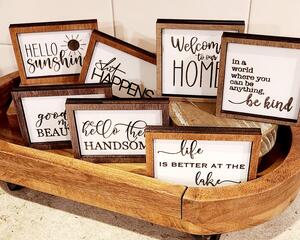 HELLO
sunshine
HAPPENS
Welcome
to our
HOME
in a
world
where you
can be
anything,
be kind
good
BEAU
hello there
HANDSOME
life
IS BETTER AT THE
lake